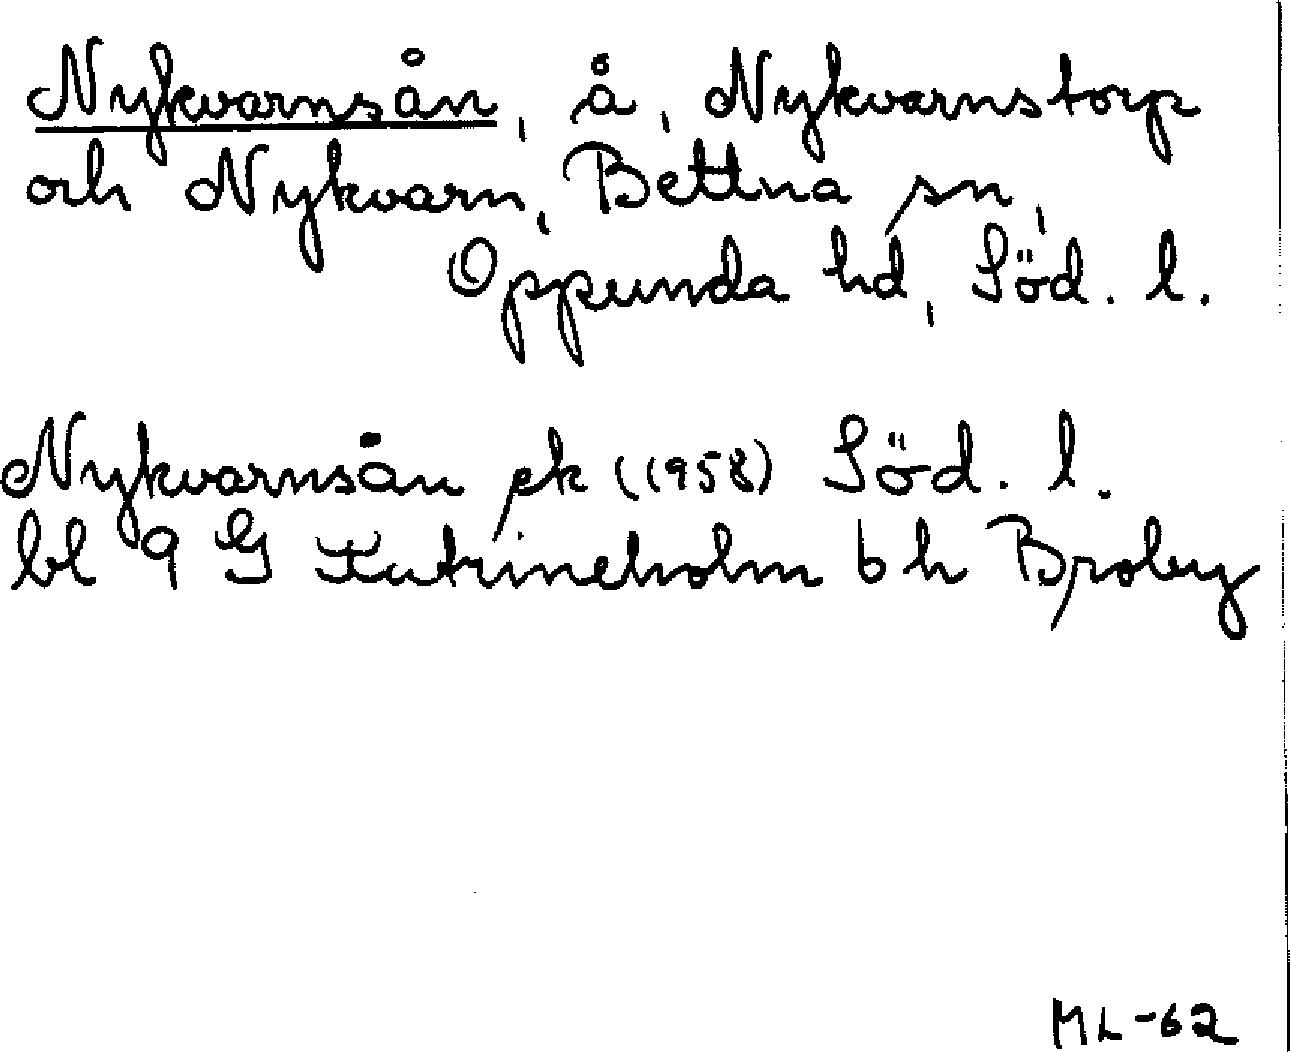 Nykvarnsån, å, Nykvarnstorp
och Nykvarn, Bettna sn,
Oppunda hd, Söd. l.
Nykvarnsån ek (1958) Söd. l.
bl 9 G Katrineholm b h Broby
ML-62